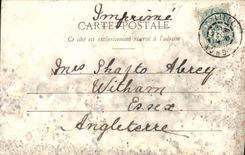 Imprimé
CARTE POSTALE
Ce côté est exclusivement réservé à l'adresse
Mrs Shafto Abrey
Witham
Essex
Angleterre